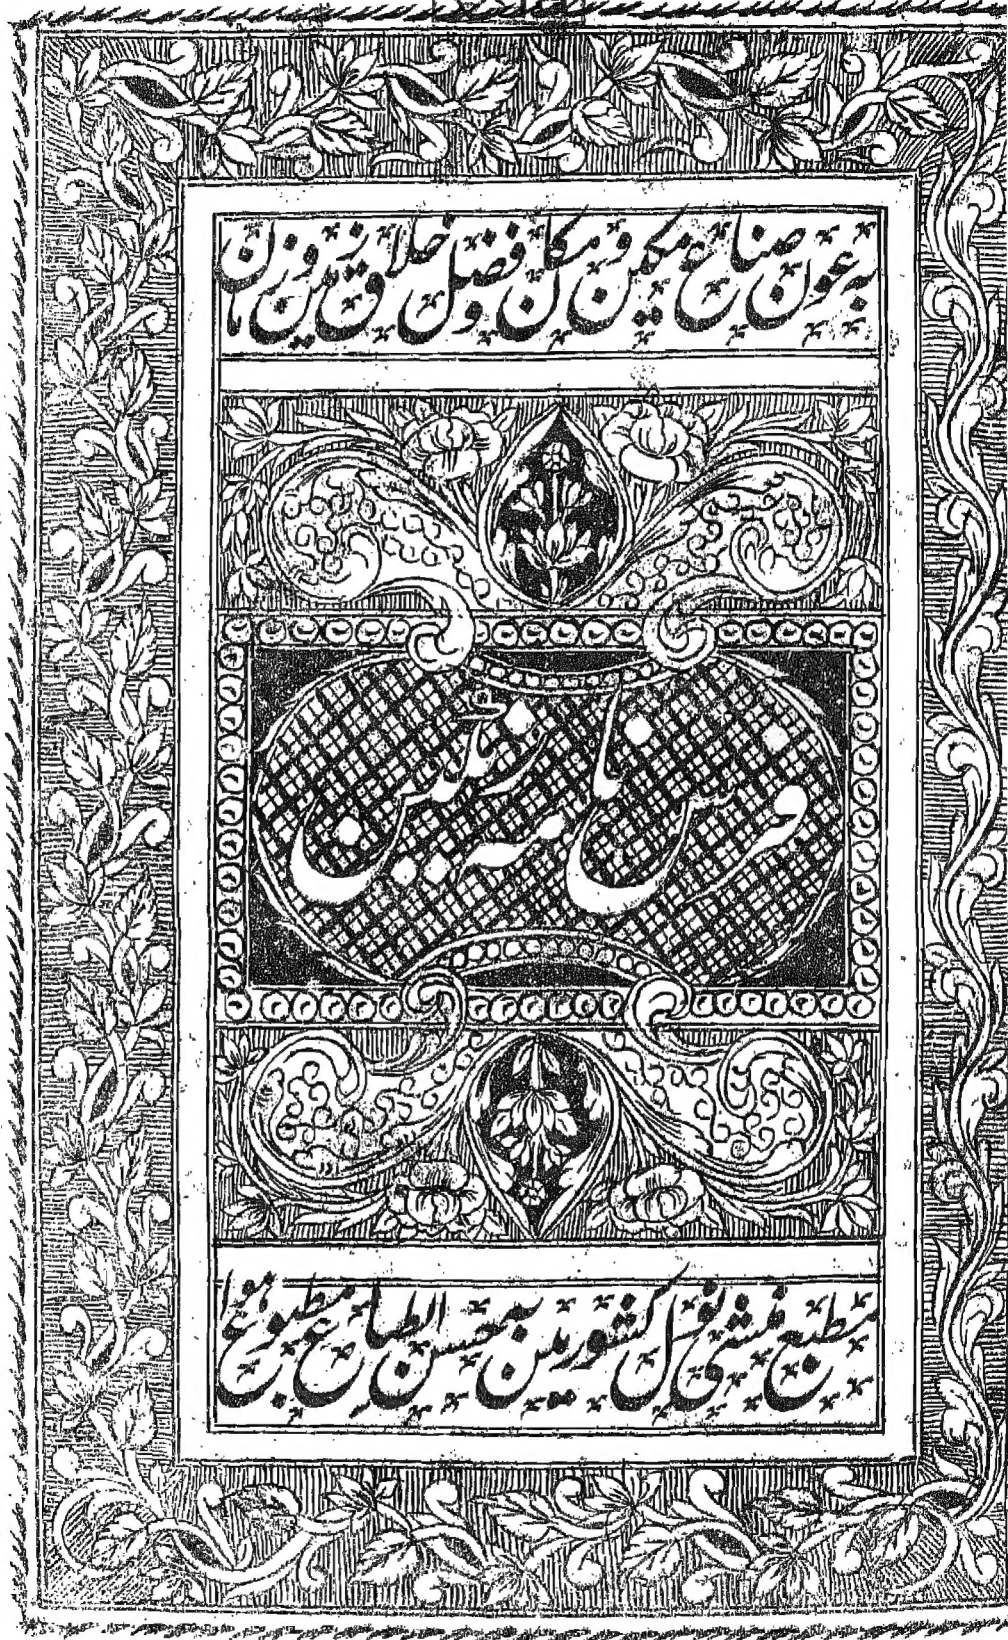 بہ عون صناع مکین و مکان و فضل خلاق زمین و زمان
فرسنامہ رنگین
مطبع منشی نول کشور مین بہ حسن انطباع مطبوع ہوا